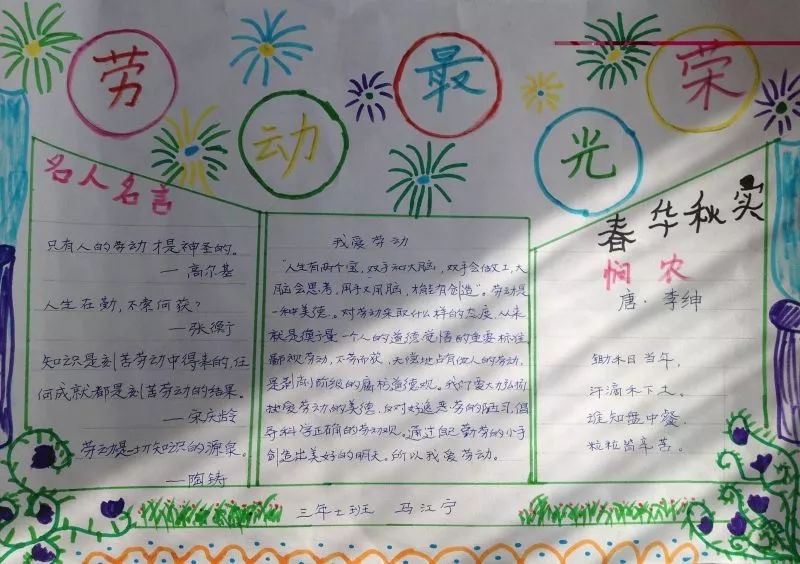 劳动最光荣
名人名言
只有人的劳动才是神圣的。
—高尔基
人生在勤,不索何获?
—张衡
知识是刻苦劳动中得来的,任
何成就都是刻苦劳动的结果。
—宋庆龄
劳动是一切知识的源泉。
—陶铸
我爱劳动
"人生有两个宝,双手和大脑,双手会做工,大
脑会思考,用手又用脑,才能有创造"。劳动是
一种美德。对劳动采取什么样的态度,从来
就是衡量一个人的道德觉悟的重要标准
鄙视劳动,不劳而获,无偿地占有他人的劳动,
是剥削阶级的腐朽道德观。我们要大力弘扬
热爱劳动的美德,反对好逸恶劳的陋习,倡
导科学正确的劳动观。通过自己勤劳的小手
创造出美好的明天。所以我爱劳动。
春华秋实
悯农
唐·李绅
锄禾日当午,
汗滴禾下土。
谁知盘中餐,
粒粒皆辛苦。
三年七班 马江宁